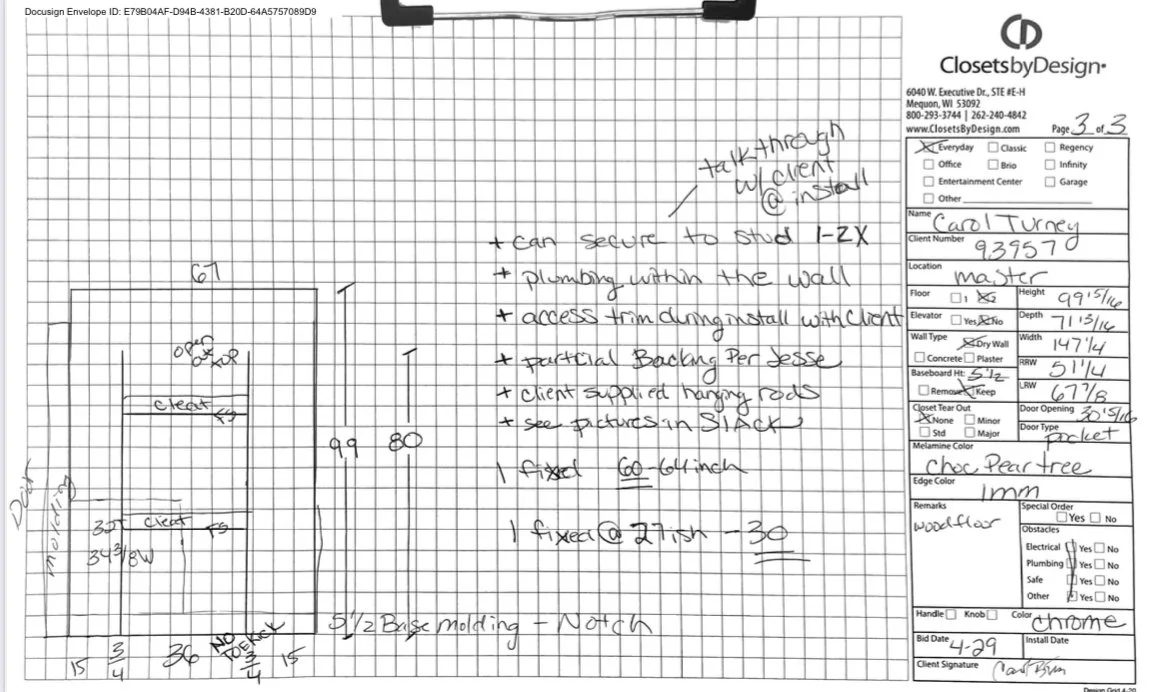 Docusign Envelope ID: E79B04AF-D94B-4381-B20D-64A5757089D9
ClosetsbyDesign
6040 W. Executive Dr., STE #E-H
Mequon, WI 53092
800-293-3744 | 262-240-4842
www.ClosetsByDesign.com Page 3 of 3
Everyday Classic Regency
Office Brio Infinity
Entertainment Center Garage
Other
Name Carol Turney
Client Number 93957
Location master
Floor 1 Height 99 15/16
Elevator Yes No Depth 71 13/16
Wall Type Dry Wall Width 147 1/4
Concrete Plaster
Baseboard Ht: 5 1/2 RRW 51 1/4
Remove Keep LRW 67 7/8
Closet Tear Out Door Opening 30 15/16
None Minor
Std Major Door Type pocket
Melamine Color
Choc Peartree
Edge Color
1mm
Remarks Special Order
woodfloor Yes No
Obstacles
Electrical Yes No
Plumbing Yes No
Safe Yes No
Other Yes No
Handle Knob Color chrome
Bid Date 4-29 Install Date
Client Signature
Design Grid 4-20
talk through
w/ client
@ install
+ can secure to stud 1-2X
+ plumbing within the wall
+ access trim during install with client
+ partcial Backing Per Jesse
+ client supplied hanging rods
+ see pictures in SlAck
1 fixed 60-64inch
1 fixed @ 27ish - 30
5 1/2 Base molding - Notch
67
open
at
TOP
cleat
FS
99
80
Door
molding
32T
cleat
FS
34 3/8 W
15
3/4
36
NO
TOEKICK
3/4
15